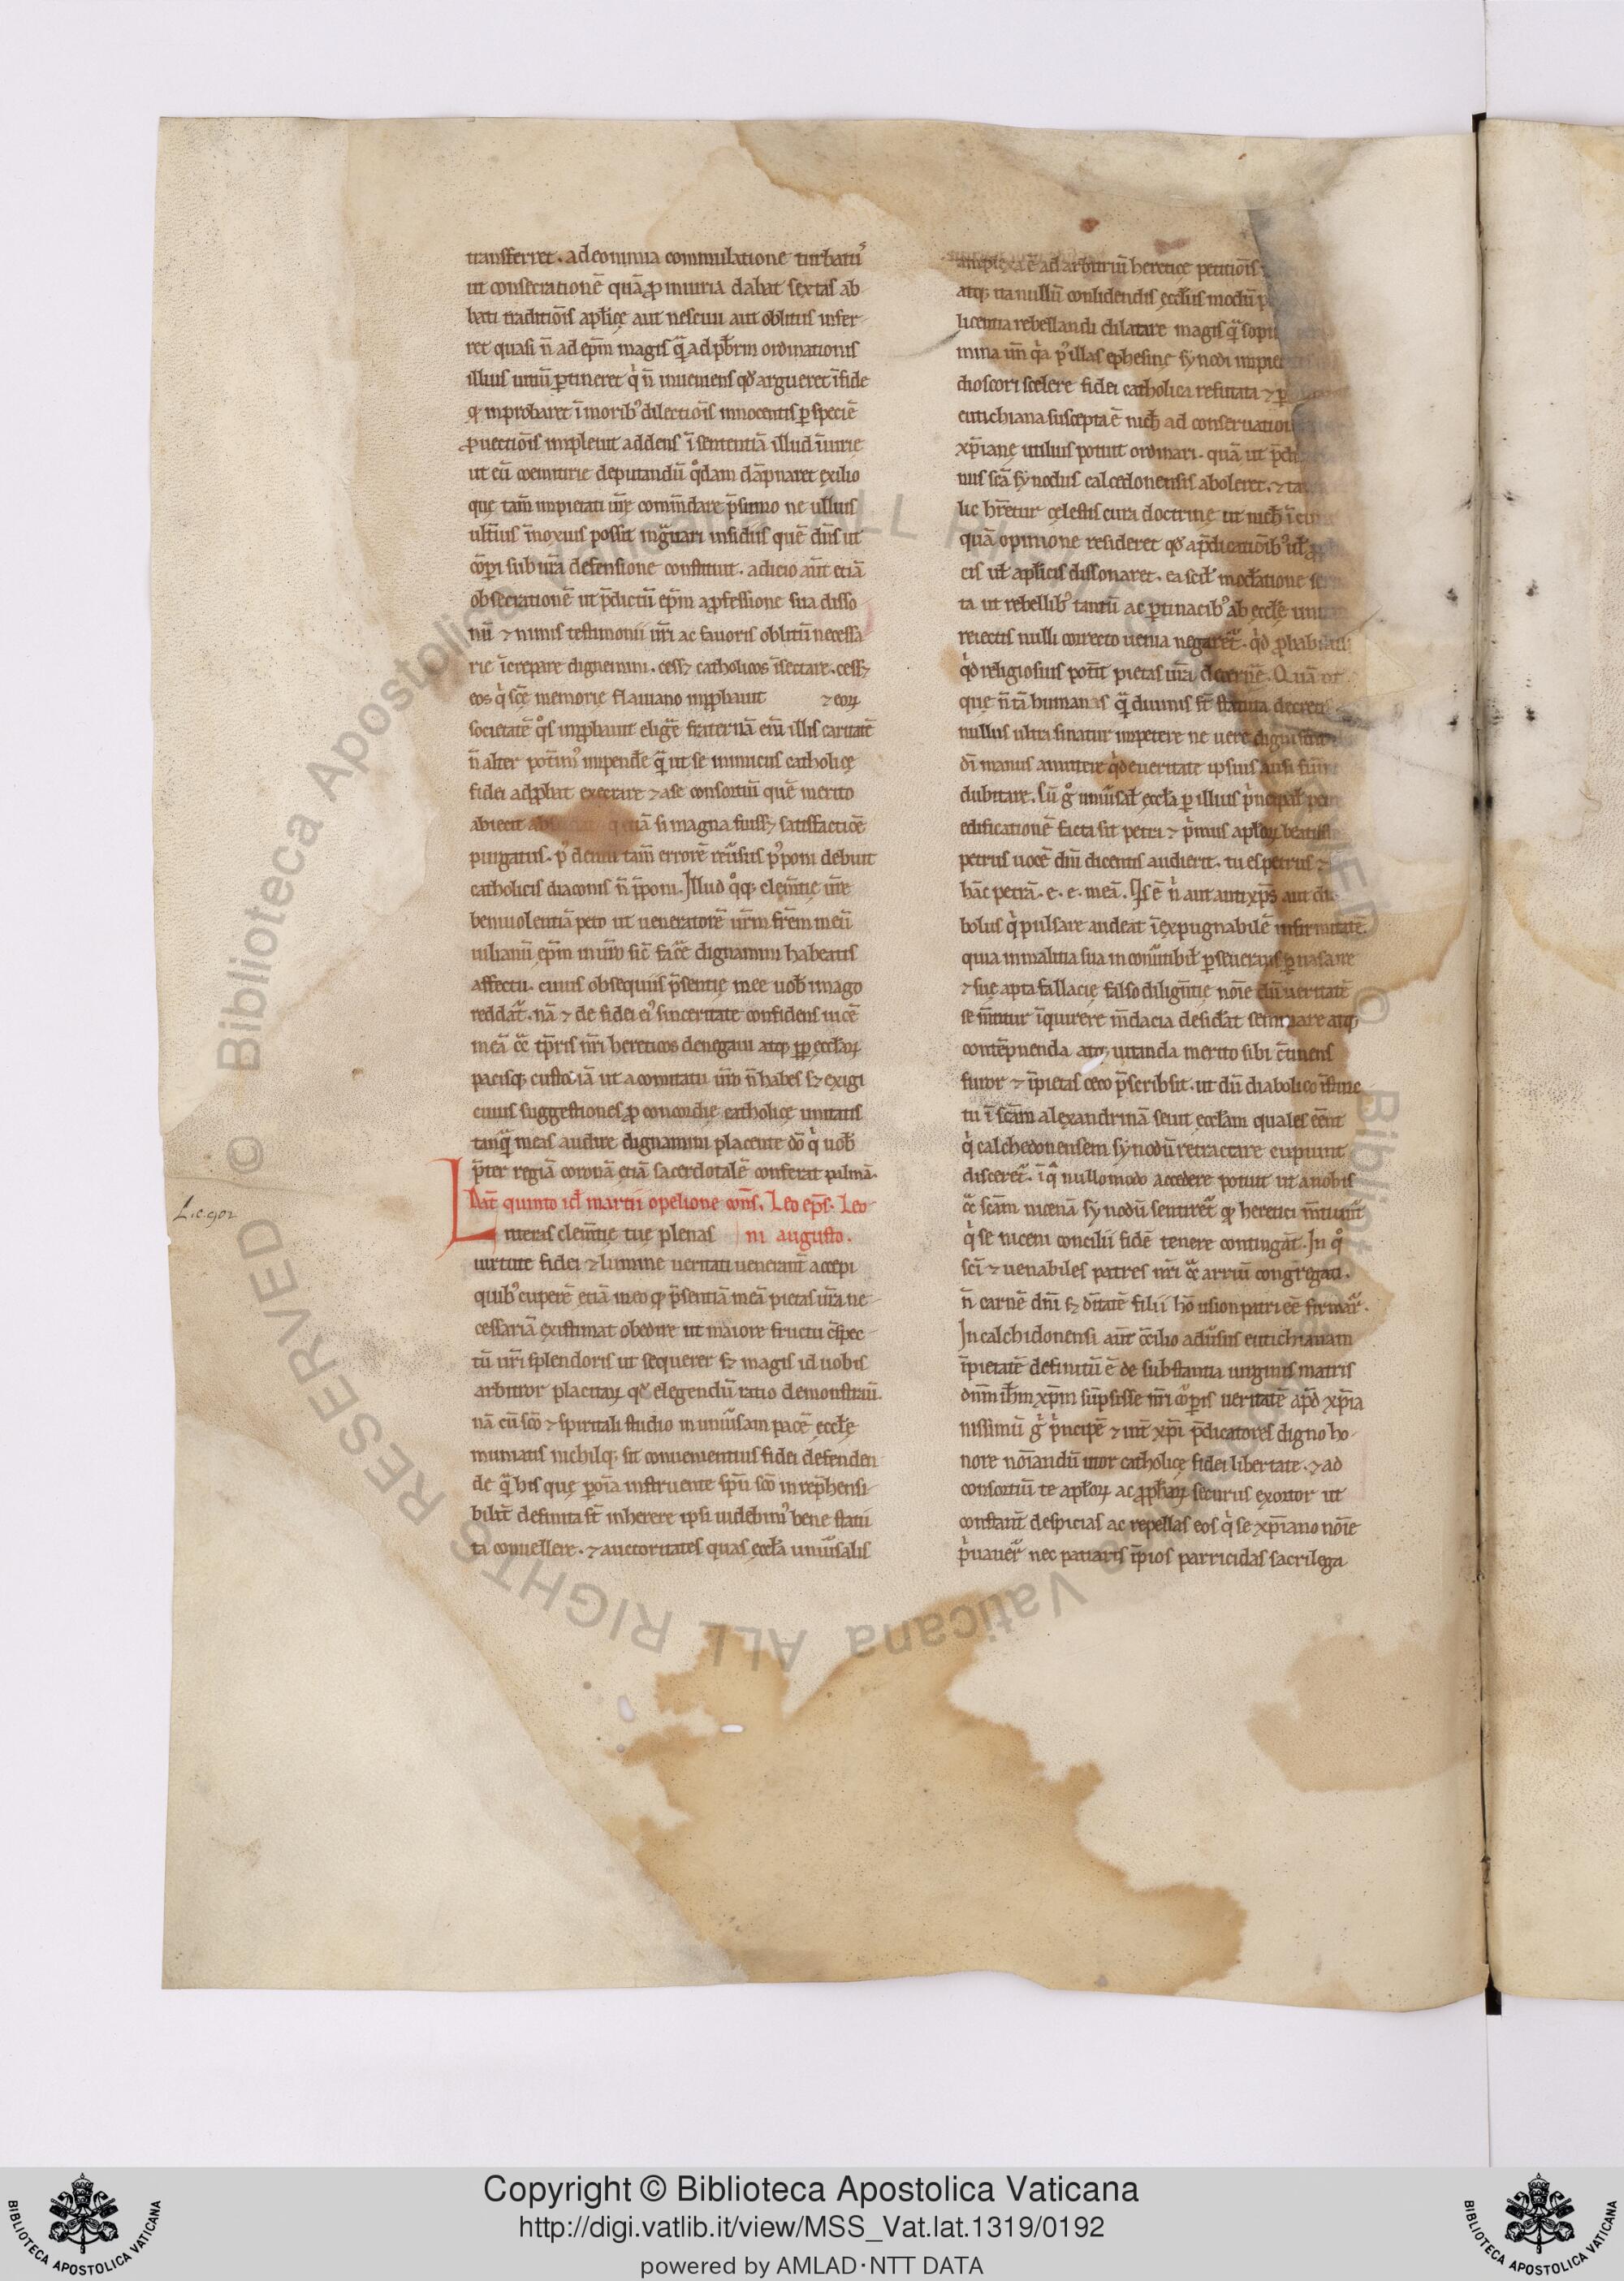 transferret. ad eo nimia commulatione turbatus
ut consecrationē quā ꝓ iniuria dabat sextas ab
bati traditiōis aplicę aut nesciuit aut oblitus infer
ret quasi n̄ ad epm̄ magis qͣ ad pbr̄m ordinationis
illius uitiū ꝑtineret qͥ n̄ inueniens qđ argueret ī fide
ꝙ inprobaret ī moribꝰ dilectiōis innocentis ꝑ speciē
ꝓuectiōis impleuit addens ī sententiā illud īiurię
ut eū coemiterie deputandū qͦdam dāpnaret exilio
que tam̄ impietati ur̄e com̄dare p̄sumo ne ullius
ult̄ius īnoxius possit īgͣuari insidiis quē dn̄s ut
cōpi sub ur̄a defensione constituit. adicio aut̄ etiā
obsecrationē ut p̄dictū epm̄ a ꝓfessione sua disso
nū ⁊ nimis testimonii nr̄i ac fauoris oblitū necessa
rie īcrepare dignemini. cessꝫ catholicos īsectare. cessꝫ
eos qͥ scē memorię flauiano inꝓbauit ⁊ eoꝝ
societatē qͦs inꝓbauit eligꝰe fraternā eni illis caritatē
n̄ alter potim̄ꝰ impendꝰe qͣ ut se inimicus catholicę
fidei adꝓbat execrare ⁊ a se consortiū quē merito
abiecit quā si magna fuissꝫ satisfactiōe
purgatus. pꝰ demū tam̄ errorē reūsus pꝰponi debuit
catholicis diaconis n̄ p̄poni. Illud qͦqꝫ clem̄tię ur̄e
beniuolentiā peto ut ueneratorē ur̄m frem̄ meū
iulianū epm̄ in uiro sic̄ facꝰe dignamini habeatis
affectu. cuius obsequiis p̄sentię mee uob imago
reddat̄. nā ⁊ de fidei eiꝰ sinceritate confidens uicē
meā ꝯͣ tp̄ris nr̄i hereticos denegaui atqꝫ ꝓp eccłaꝝ
pacisqꝫ custodiā ut a comitatu ur̄o n̄ habeś sꝫ exigi
cuius suggestiones ꝓ concordię catholicę unitatis
tanqͣ meas audire dignamini placente dō qͥ uob
p̄ter regiā coronā etiā sacerdotalē conferat palmā.
Dat̄ quinto id martii opelione cons. Leo eps. Leo
Litteras clem̄tię tuę plenas ni augusto.
L.c.gor
uirtute fidei ⁊ lumine ueritati uenerant̄ accepi
quibꝰ cuperē etiā in eo ꝙ p̄sentiā meā pietas ur̄a ne
cessariā existimat obedire ut maiore fructu c̄spec
tū ur̄i splendoris ut sequerer sꝫ magis id uobis
arbitror placituꝝ qđ elegendū ratio demonstrau
nā cū scō ⁊ spiritali studio in uniūsam pacē eccłę
muniatis nichilqꝫ sit conuenientius fidei defenden
de qͣ his quę ꝑ oīa instruente spū scō inrep̄hensi
bilit̄ definita st̄ inherere ipsi uidebimꝰ bene statu
ta conuellere. ⁊ auctoritates quas eccła uniūsalis
amplexa ē ad arbitriū heretice petitiōis
atqꝫ ita nullū conlidendis eccłiis modū
licentia rebellandi dilatare magis qͣ sopi
mina um̄ qͥa pꝰ illas ephesinę synodi impie
dioscori scelere fidei catholica refutata ⁊
eutichiana suscepta ē nich ad conseruatio
xp̄iane utilius potuit ordinari. quā ut p̄di
nis scā synodus calcedonensis aboleret. ⁊ ta
lic hr̄etur cęlestis cura doctrinę ut nich ī cui
quā opinione resideret qđ a p̄dicatiōibꝰ uł
cis uł apłicis dissonaret. ea scił mođatione ser
ta ut rebellibꝰ tantū ac ꝑtinacibꝰ ab eccłe uni
reiectis nulli correcto uenia negaret̄. qͥd ꝓbabi
qͥd religiosius pot̄it pietas ur̄a decernꝰe. Quā ut
que n̄ tā humanis qͣ diuinis st̄ statuta decretis
nullus ultra sinatur impetere ne uere digni sint
dī manus amittere qͥ de ueritate ipsius ausi fuir
dubitare. Cū gͦ uniūsał eccła ꝑ illius pͥncipał
edificationē facta sit petri ⁊ pͥmus apłoꝝ beatiss
petrus uocē dnī dicentis audierit. tu es petrus ⁊
hāc petrā. e. e. meā. Qͥs ē nͥ aut antixp̄s aut dia
bolus qͥ pulsare audeat īexpugnabilē infirmitatē.
quia in malitia sua inconūtibił ꝑseuerans ꝑ uasa ire
⁊ suę apta fallacię falso dilign̄tię noīe dū ueritatē
se m̄titur īquirere m̄dacia desiđat seminare atqꝫ
contēpnenda atqꝫ uitanda merito sibi c̄tinens
furor ⁊ īpietas ceco p̄scribsit. ut dū diabolico īstinc
tu ī scām alexandrinā seuit eccłam quales eēnt
qͥ calchedonensem synodū retractare cupiunt
disceret̄. īqͣ nullomodo accedere potuit ut a nobis
ꝯͣ scām nicenā synodū sentiret̄ ꝙ heretici m̄tiunt̄
qͥ se niceni concilii fidē tenere contingāt. In qͦ
scī ⁊ uenabiles patres nr̄i ꝯͣ arriū congregati.
n̄ carnē dnī sꝫ dītatē filii hōusion patri eē firmar̄.
In calchidonensi aut̄ ꝯ̄cilio adūsus eutichianam
īpietatē definitū ē de substantia uirginis matris
dnm̄ ihm̄ xp̄m sūpsisse nr̄i cōꝑis ueritatē ap̄d xp̄ia
nissimū gͥ pͥncipē ⁊ int̄ xp̄i p̄dicatores digno ho
nore noīandū utor catholicę fidei libertate. ⁊ ad
consortiū te apłoꝝ ac ꝓphaꝝ securus exortor ut
constant̄ despicias ac repellas eos qͥ se xp̄iano noīe
pͥuauer̄ nec patiaris īpios parricidas sacrilega
Copyright © Biblioteca Apostolica Vaticana
http://digi.vatlib.it/view/MSS_Vat.lat.1319/0192
powered by AMLAD·NTT DATA
BIBLIOTECA APOSTOLICA VATICANA
BIBLIOTECA APOSTOLICA VATICANA
© Biblioteca Apostolica Vaticana ALL RIGHTS RESERVED © Biblioteca Apostolica Vaticana ALL RIGHTS RESERVED